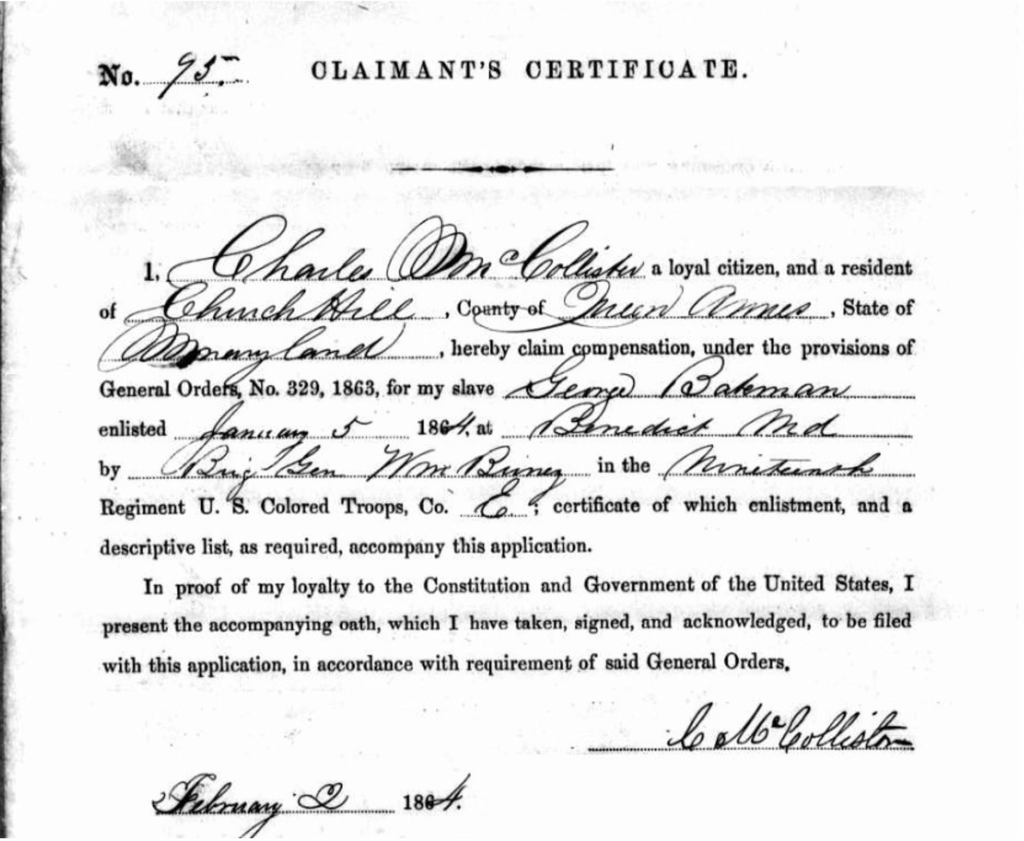 No. 95. CLAIMANT'S CERTIFICATE.
I, Charles McCollister a loyal citizen, and a resident
of Church Hill, County of Queen Annes, State of
Maryland, hereby claim compensation, under the provisions of
General Orders, No. 329, 1863, for my slave George Bateman
enlisted January 5 1864, at Benedict Md
by Brig Gen Wm Birney in the Nineteenth
Regiment U. S. Colored Troops, Co. E; certificate of which enlistment, and a
descriptive list, as required, accompany this application.
In proof of my loyalty to the Constitution and Government of the United States, I
present the accompanying oath, which I have taken, signed, and acknowledged, to be filed
with this application, in accordance with requirement of said General Orders.
C McCollister
February 2 1864.